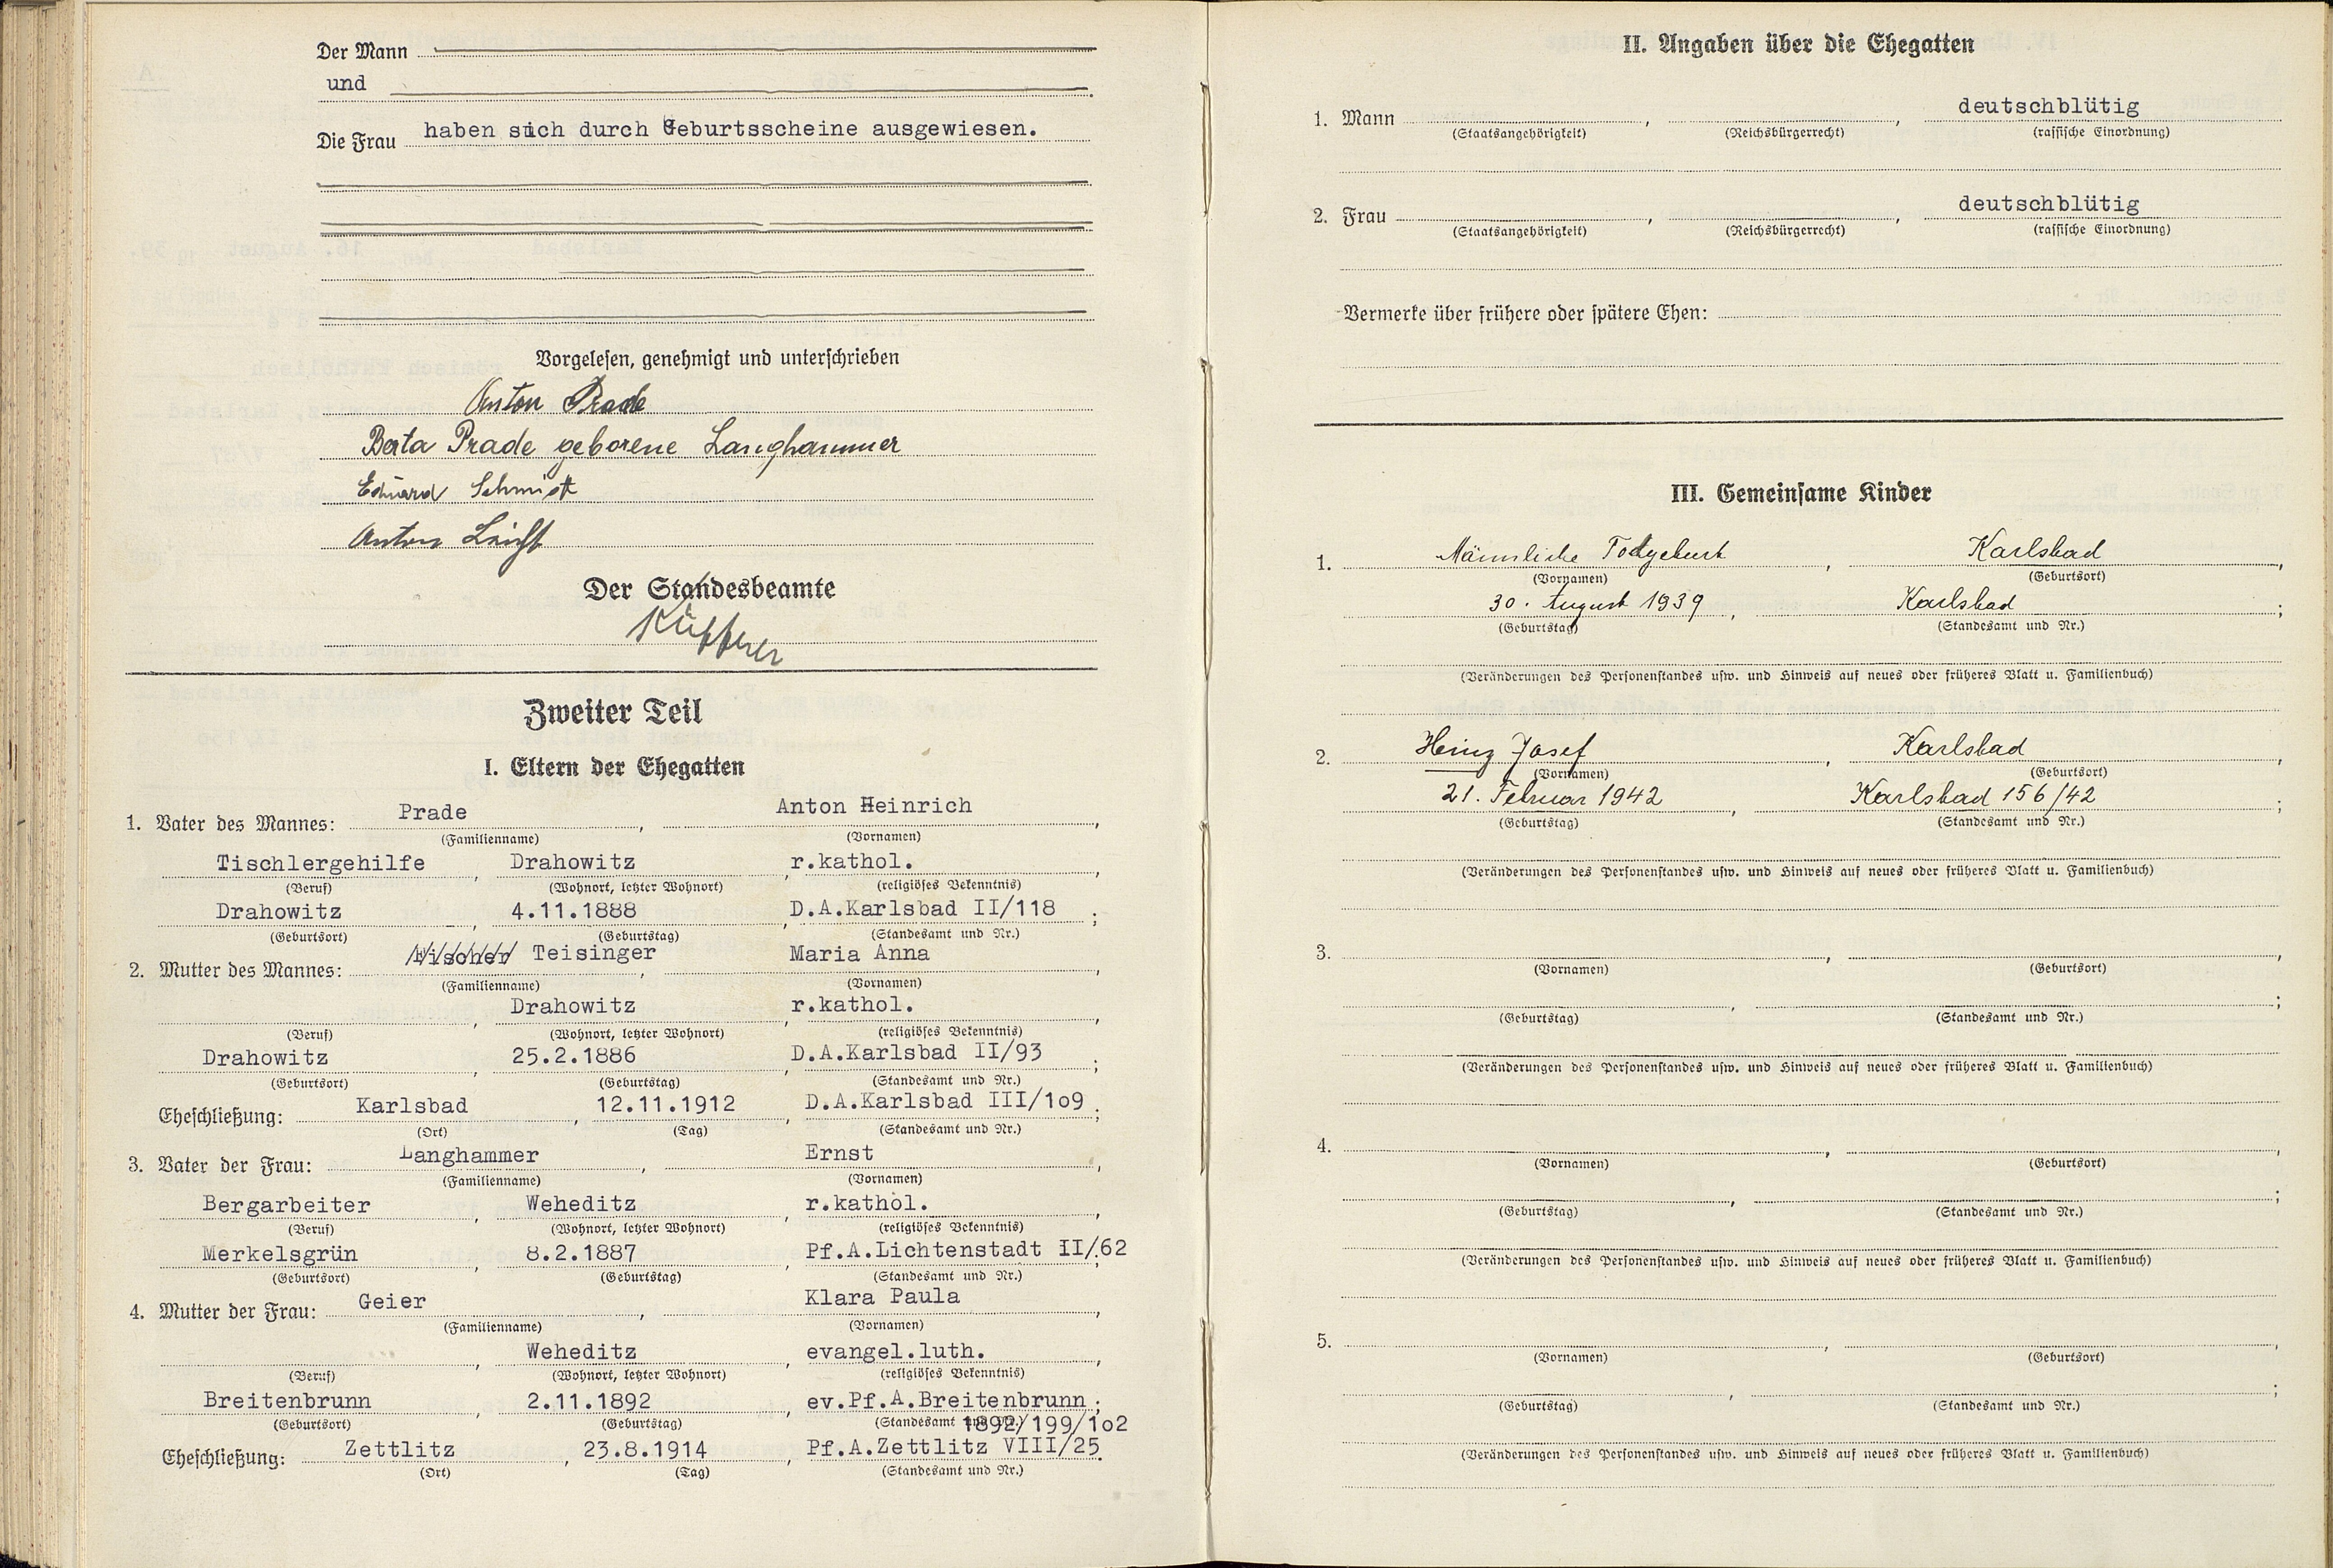 Der Mann
und
Die Frau haben sich durch Geburtsscheine ausgewiesen.
Vorgelesen, genehmigt und unterschrieben
Anton Prade
Berta Prade geborene Langhammer
Eduard Schmidt
Anton
Der Standesbeamte
Zweiter Teil
I. Eltern der Ehegatten
1. Vater des Mannes: Prade, Anton Heinrich,
(Familienname) (Vornamen)
Tischlergehilfe, Drahowitz, r.kathol.,
(Beruf) (Wohnort, letzter Wohnort) (religiöses Bekenntnis)
Drahowitz, 4.11.1888, D.A.Karlsbad II/118;
(Geburtsort) (Geburtstag) (Standesamt und Nr.)
2. Mutter des Mannes: Teisinger, Maria Anna,
(Familienname) (Vornamen)
Drahowitz, r.kathol.,
(Beruf) (Wohnort, letzter Wohnort) (religiöses Bekenntnis)
Drahowitz, 25.2.1886, D.A.Karlsbad II/93;
(Geburtsort) (Geburtstag) (Standesamt und Nr.)
Eheschließung: Karlsbad, 12.11.1912, D.A.Karlsbad III/1o9;
(Ort) (Tag) (Standesamt und Nr.)
3. Vater der Frau: Langhammer, Ernst,
(Familienname) (Vornamen)
Bergarbeiter, Weheditz, r.kathol.,
(Beruf) (Wohnort, letzter Wohnort) (religiöses Bekenntnis)
Merkelsgrün, 8.2.1887, Pf.A.Lichtenstadt II/62;
(Geburtsort) (Geburtstag) (Standesamt und Nr.)
4. Mutter der Frau: Geier, Klara Paula,
(Familienname) (Vornamen)
Weheditz, evangel.luth.,
(Beruf) (Wohnort, letzter Wohnort) (religiöses Bekenntnis)
Breitenbrunn, 2.11.1892, ev.Pf.A.Breitenbrunn;
(Geburtsort) (Geburtstag) (Standesamt und Nr.) 1892/199/1o2
Eheschließung: Zettlitz, 23.8.1914, Pf.A.Zettlitz VIII/25.
(Ort) (Tag) (Standesamt und Nr.)
II. Angaben über die Ehegatten
1. Mann , , deutschblütig
(Staatsangehörigkeit) (Reichsbürgerrecht) (rassische Einordnung)
2. Frau , , deutschblütig
(Staatsangehörigkeit) (Reichsbürgerrecht) (rassische Einordnung)
Vermerke über frühere oder spätere Ehen:
III. Gemeinsame Kinder
1. Männliche Todgeburt, Karlsbad,
(Vornamen) (Geburtsort)
30. August 1939, Karlsbad;
(Geburtstag) (Standesamt und Nr.)
(Veränderungen des Personenstandes usw. und Hinweis auf neues oder früheres Blatt u. Familienbuch)
2. Heinz Josef, Karlsbad,
(Vornamen) (Geburtsort)
21. Februar 1942, Karlsbad 156/42;
(Geburtstag) (Standesamt und Nr.)
(Veränderungen des Personenstandes usw. und Hinweis auf neues oder früheres Blatt u. Familienbuch)
3. , ,
(Vornamen) (Geburtsort)
, ;
(Geburtstag) (Standesamt und Nr.)
(Veränderungen des Personenstandes usw. und Hinweis auf neues oder früheres Blatt u. Familienbuch)
4. , ,
(Vornamen) (Geburtsort)
, ;
(Geburtstag) (Standesamt und Nr.)
(Veränderungen des Personenstandes usw. und Hinweis auf neues oder früheres Blatt u. Familienbuch)
5. , ,
(Vornamen) (Geburtsort)
, ;
(Geburtstag) (Standesamt und Nr.)
(Veränderungen des Personenstandes usw. und Hinweis auf neues oder früheres Blatt u. Familienbuch)